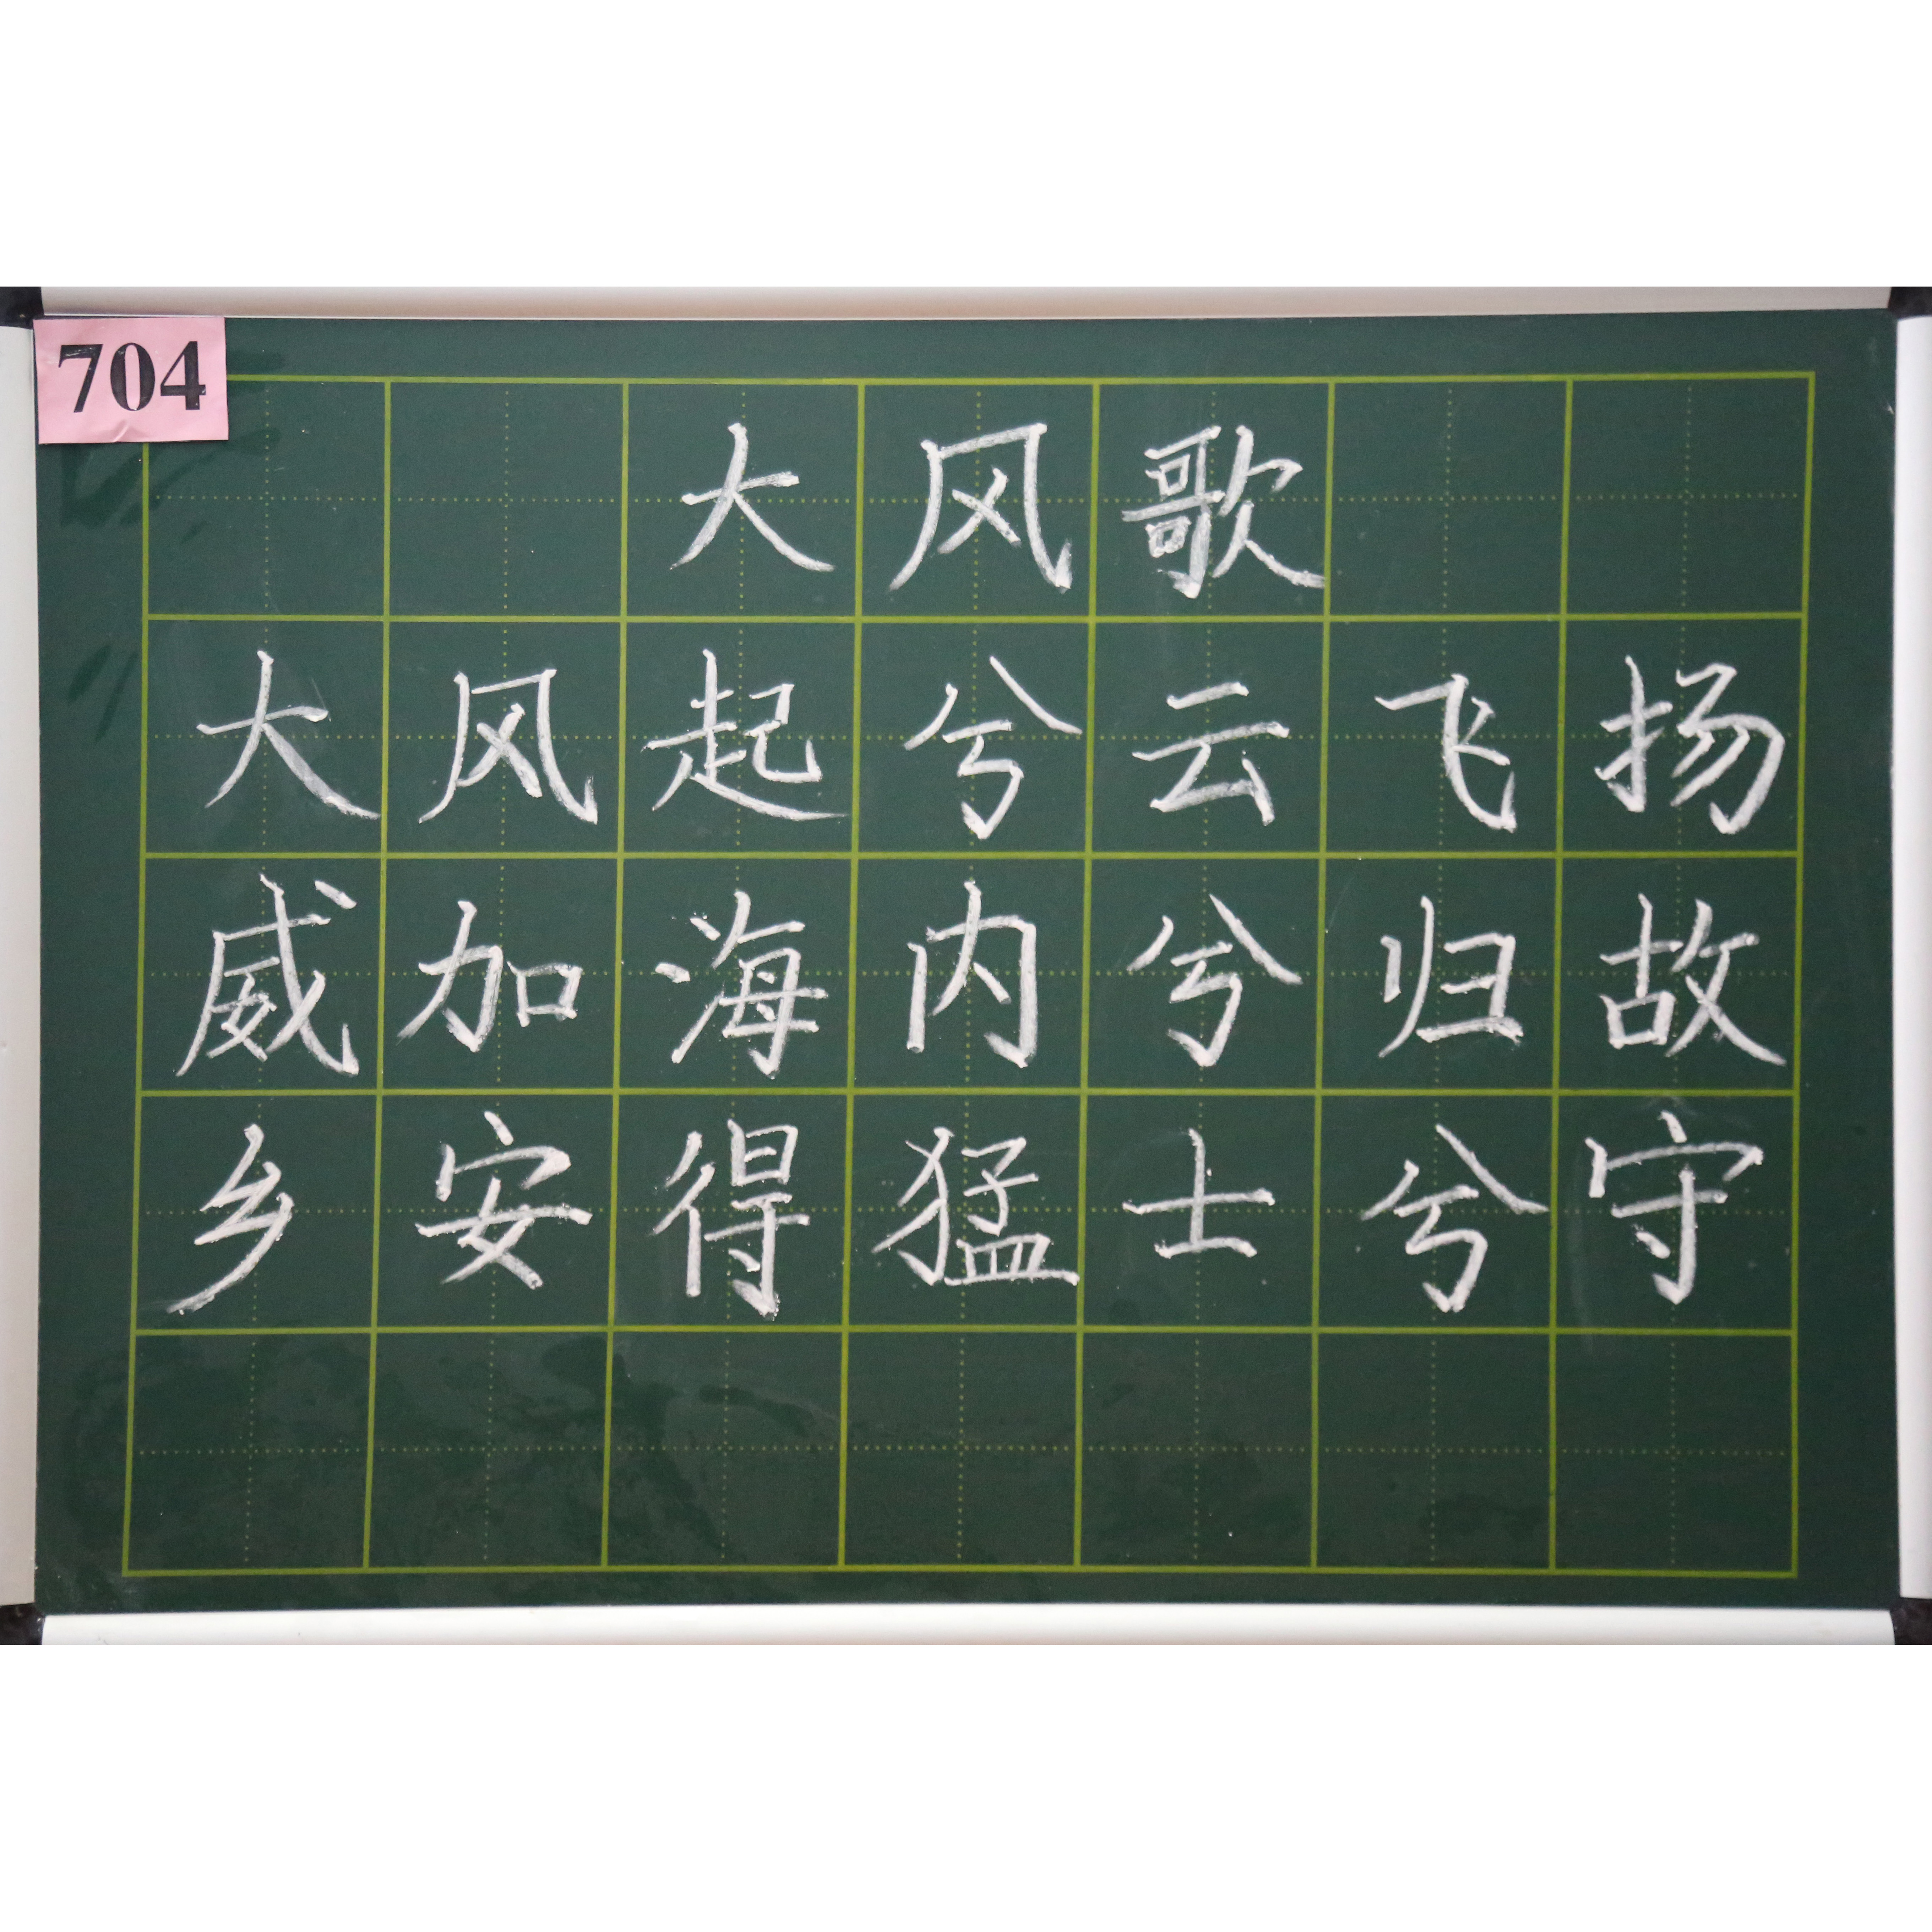 704
大风歌
大风起兮云飞扬
威加海内兮归故
乡安得猛士兮守